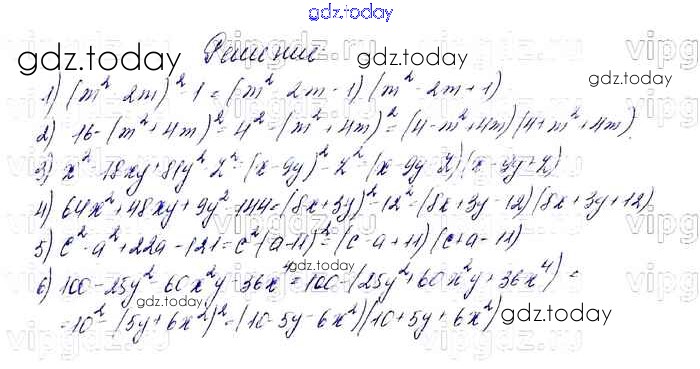 gdz.today
Решение
gdz.today
gdz.today
gdz.today
1) (m² - 2m)² - 1 = (m² - 2m - 1)(m² - 2m + 1)
2) 16 - (m² + 4m)² = 4² - (m² + 4m)² = (4 - m² + 4m)(4 + m² + 4m)
3) x² - 18xy + 81y² - z² = (x - 9y)² - z² = (x - 9y - z)(x - 9y + z)
4) 64x² + 48xy + 9y² - 144 = (8x + 3y)² - 12² = (8x + 3y - 12)(8x + 3y + 12)
5) c² - a² + 22a - 121 = c² - (a - 11)² = (c - a + 11)(c + a - 11)
gdz.today
6) 100 - 25y² - 60x²y - 36x⁴ = 100 - (25y² + 60x²y + 36x⁴) =
gdz.today
gdz.today
= 10² - (5y + 6x²)² = (10 - 5y - 6x²)(10 + 5y + 6x²)